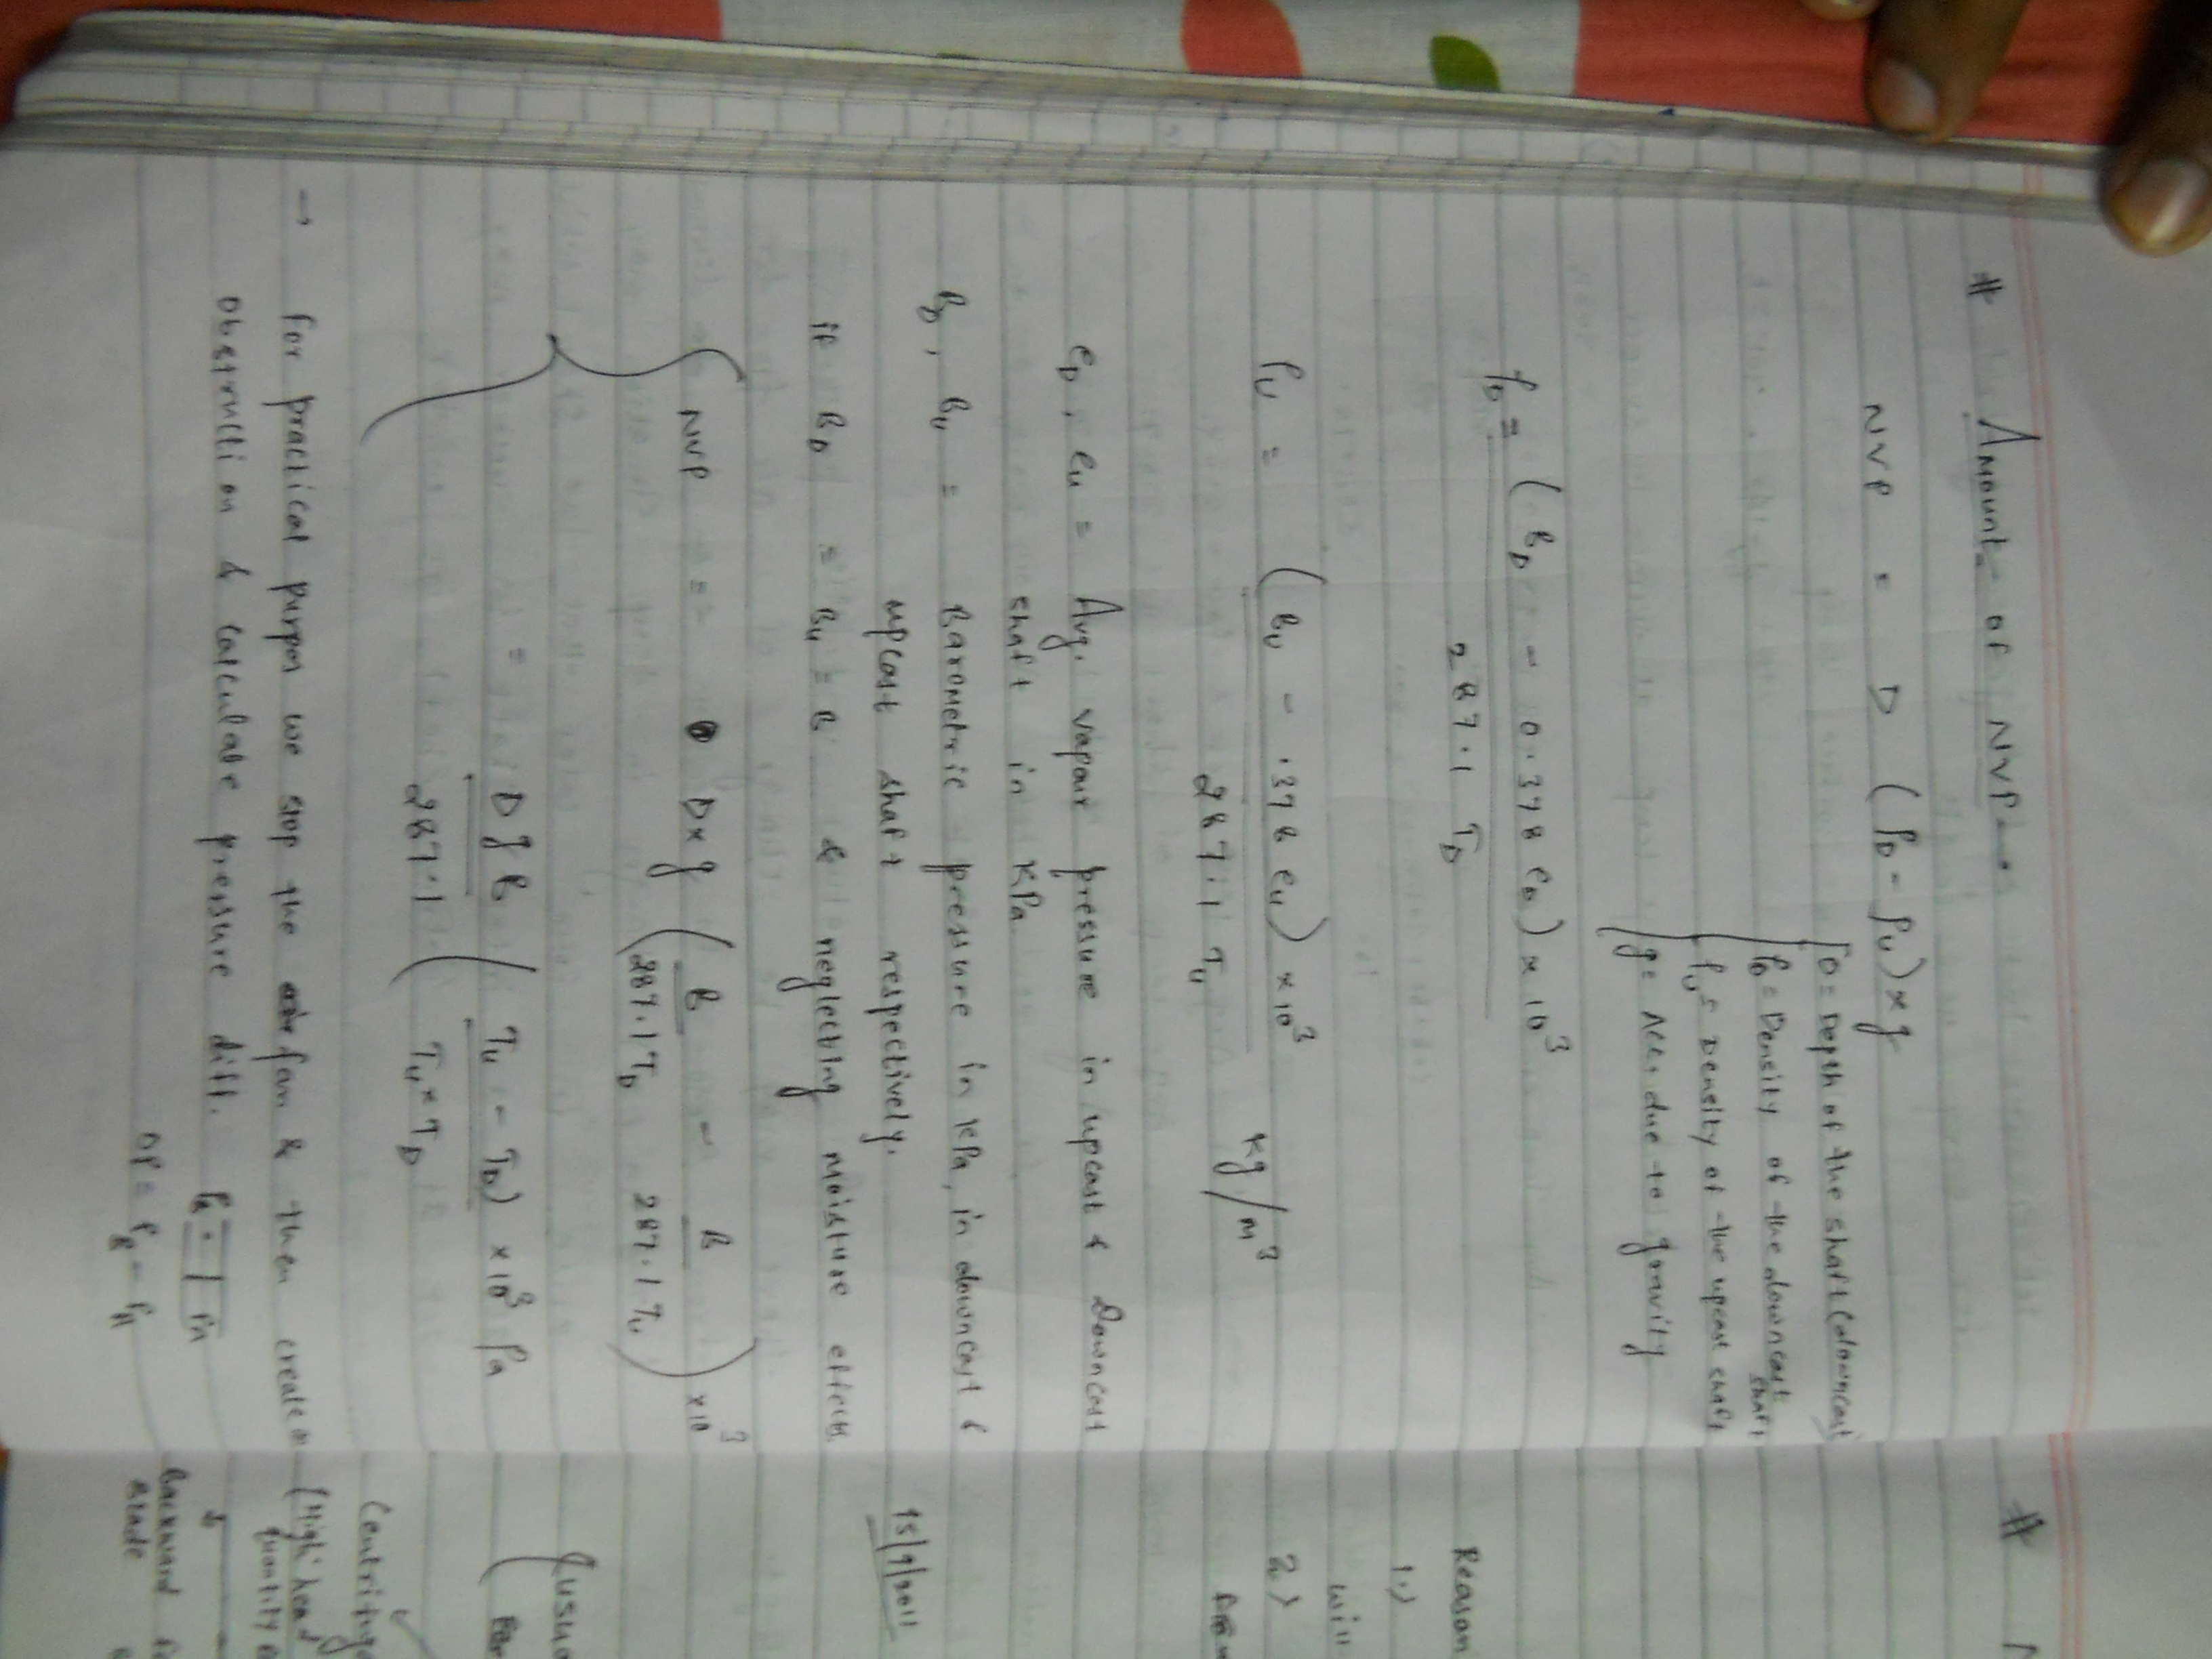 # Amount of NVP
NVP = D (ρD - ρU) × g
D = Depth of the shaft (downcast
ρD = Density of the downcast shaft
ρU = Density of the upcast shaft
g = Acc. due to gravity
ρD = (BD - 0.378 eD) × 10³
287.1 TD
ρU = (BU - .378 eU) × 10³ kg/m³
287.1 TU
eD, eu = Avg. vapour pressure in upcast & Downcast
shaft in KPa
BD, BU = Barometric pressure in KPa, in downcast &
upcast shaft respectively.
if BD = BU = B & neglecting moisture effects
NVP = D×g ( B - B ) ×10³
287.1TD 287.1TU
= DgB ( TU - TD) ×10³ Pa
287.1 TU×TD
→ for practical purpos we stop the fan & then create
obstruction & calculate pressure diff.
DP = PB - PA
#
Reason
1.)
will
2.)
15/9/2011
(High head
quantity
Backward
blade